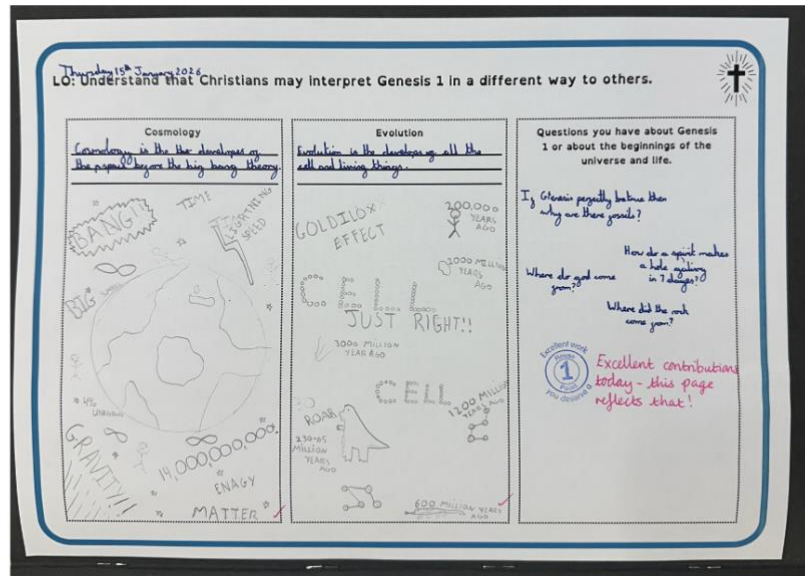 Thursday 15th January 2026
LO: Understand that Christians may interpret Genesis 1 in a different way to others.
Cosmology
Cosmology is the the developes of
the space before the big bang theory.
BANG!!
TIME
LIGHTNING
SPEED
BIG
4%
UNKNOWN
GRAVITY!!
14,000,000,000.
ENAGY
MATTER
Evolution
Evolution is the develope of all the
cell and living things.
GOLDILOX
EFFECT
200,000
YEARS
AGO
2000 MILLION
YEARS
AGO
CELL
JUST RIGHT!!
3000 MILLION
YEAR AGO
CELL
1200 MILLION
YEARS AGO
ROAR
230-65
MILLION
YEARS
AGO
600 MILLION YEARS
AGO
Questions you have about Genesis
1 or about the beginnings of the
universe and life.
If Genesis perfectly
then
why are there fossils?
How do a spirit makes
a hole
in 7 dayes?
Where do god come
from?
Where did the rock
come from?
Excellent work
House
1
Point
you deserve a
Excellent contributions
today - this page
reflects that!